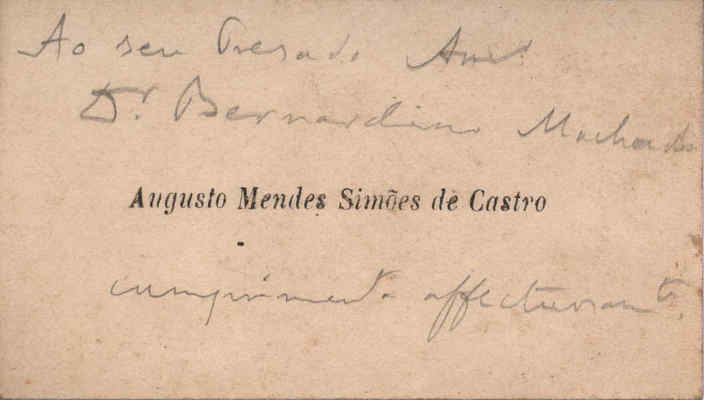 Ao seu Presado Amº
Dr. Bernardino Machado
Augusto Mendes Simões de Castro
cumprimenta affectuosamte.